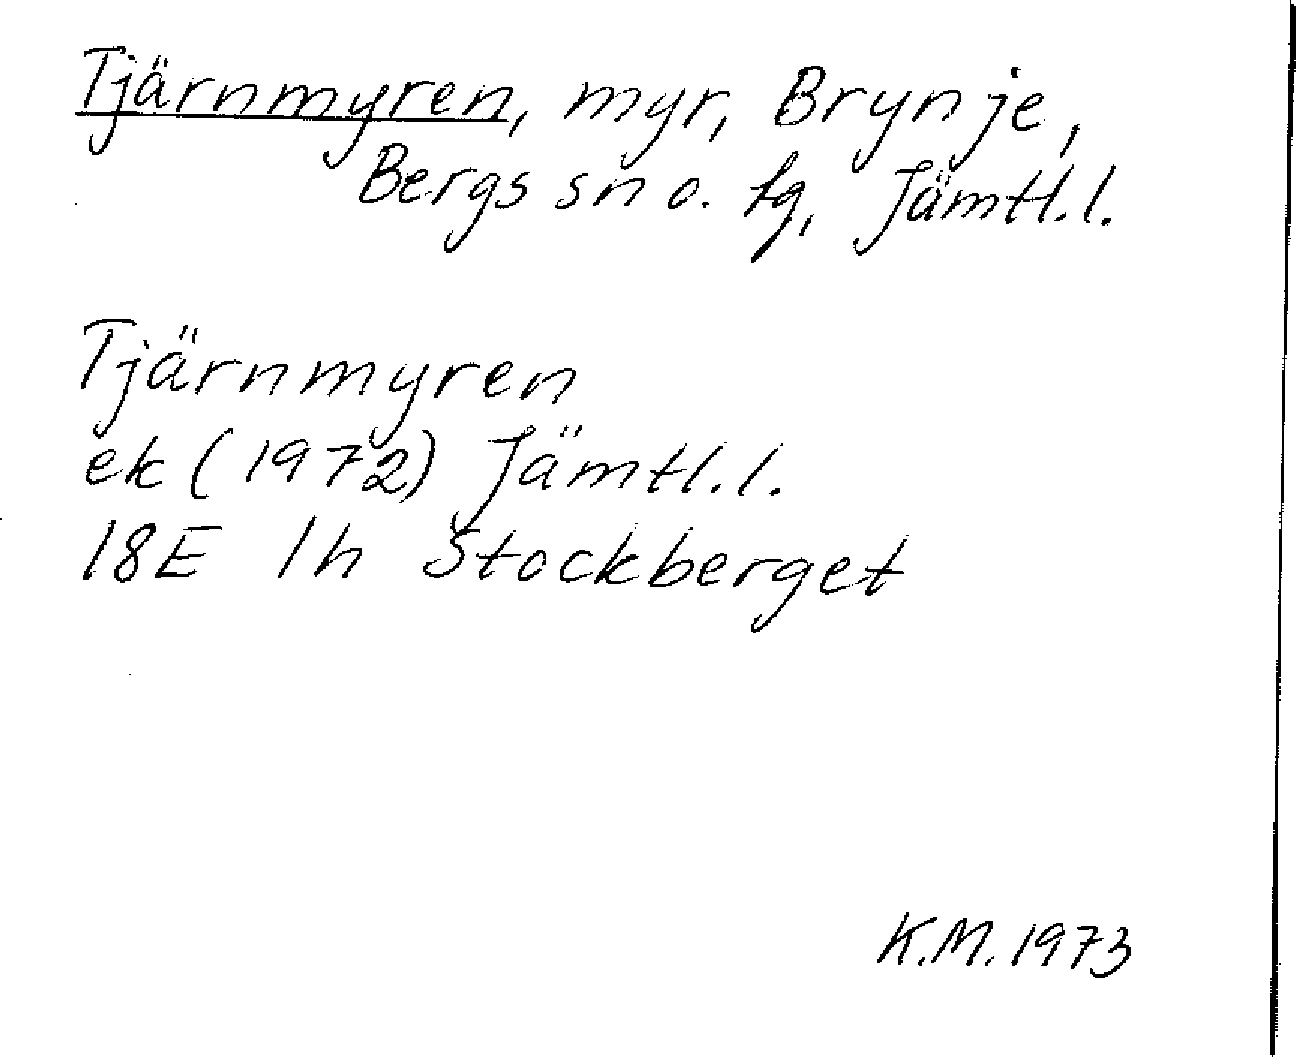 Tjärnmyren, myr, Brynje,
Bergs sn o. tg, Jämtl.l.
Tjärnmyren
ek (1972) Jämtl.l.
18E 1h Stockberget
K.M. 1973